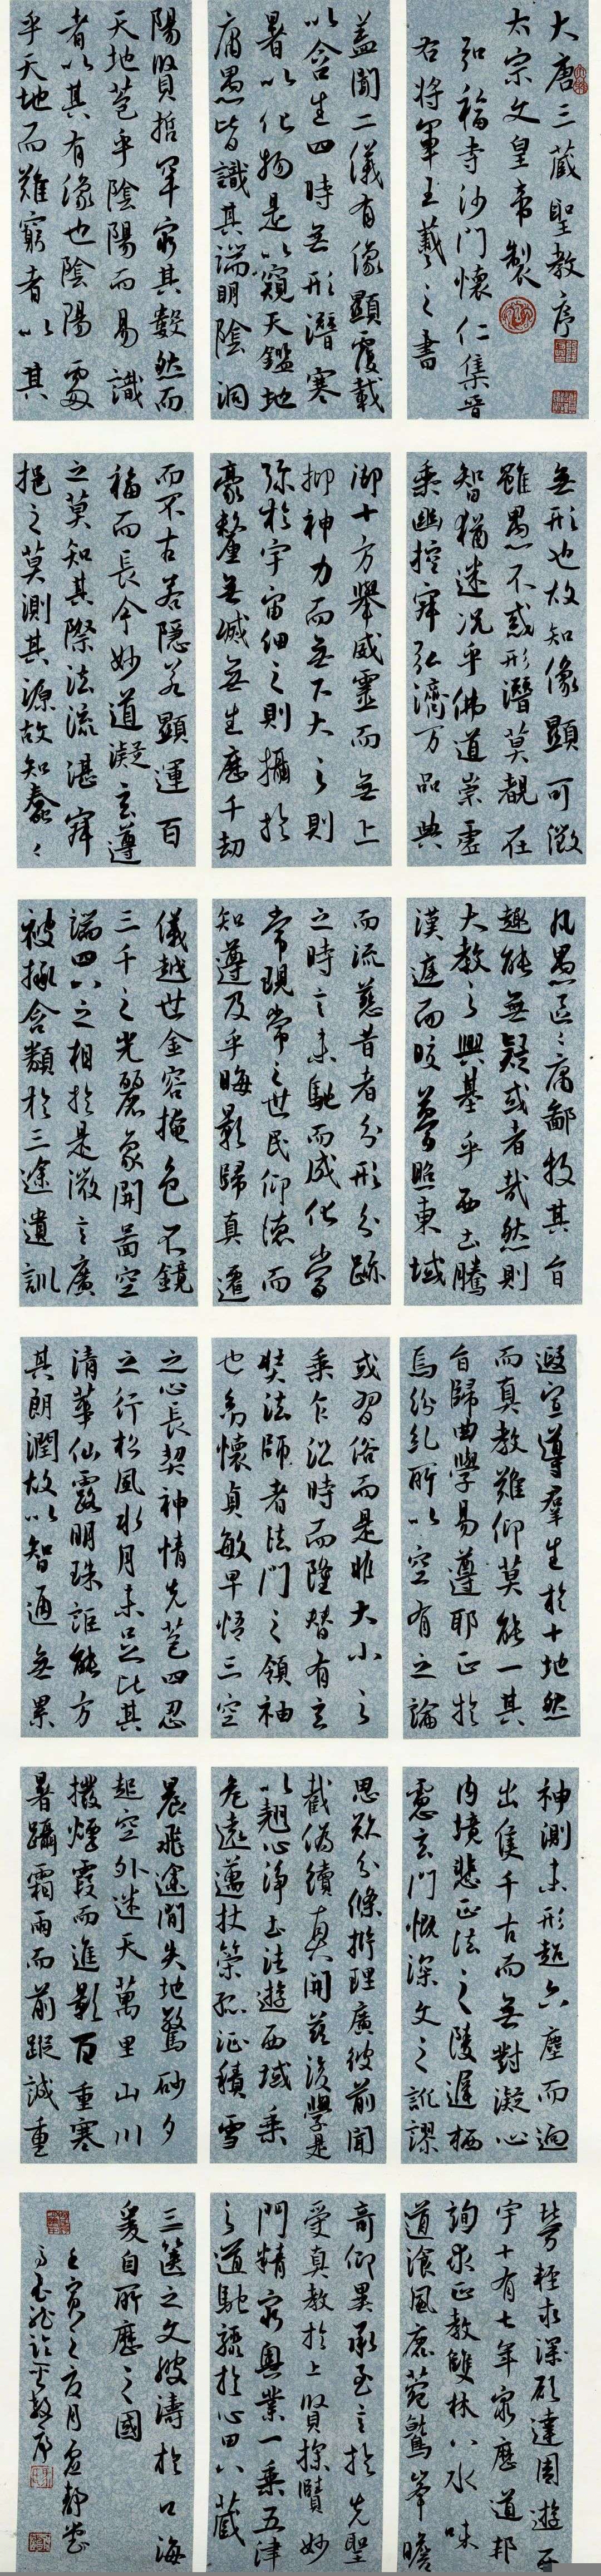 大唐三藏聖教序
太宗文皇帝製
弘福寺沙門懷仁集晉
右將軍王羲之書
蓋聞二儀有像顯覆載
以含生四時無形潛寒
暑以化物是以窺天鑑地
庸愚皆識其端明陰洞
陽賢哲罕窮其數然而
天地苞乎陰陽而易識
者以其有像也陰陽處
乎天地而難窮者以其
無形也故知像顯可徵
雖愚不惑形潛莫覩在
智猶迷況乎佛道崇虛
乘幽控寂弘濟万品典
御十方舉威靈而無上
抑神力而無下大之則
弥於宇宙細之則攝於
豪釐無滅無生歷千劫
而不古若隱若顯運百
福而長今妙道凝玄遵
之莫知其際法流湛寂
挹之莫測其源故知蠢々
凡愚區々庸鄙投其旨
趣能無疑或者哉然則
大教之興基乎西土騰
漢庭而皎夢照東域
而流慈昔者分形分跡
之時言未馳而成化當
常現常之世民仰德而
知遵及乎晦影歸真遷
儀越世金容掩色不鏡
三千之光麗象開圖空
端四八之相於是微言廣
被拯含類於三途遺訓
遐宣導群生於十地然
而真教難仰莫能一其
旨歸曲學易遵耶正於
焉紛糺所以空有之論
或習俗而是非大小之
乘乍沿時而隆替有玄
奘法師者法門之領袖
也幼懷貞敏早悟三空
之心長契神情先苞四忍
之行松風水月未足比其
清華仙露明珠詎能方
其朗潤故以智通無累
神測未形超六塵而迥
出隻千古而無對凝心
內境悲正法之陵遲栖
慮玄門慨深文之訛謬
思欲分條析理廣彼前聞
截偽續真開茲後學是
以翹心淨土法遊西域乘
危遠邁杖策孤征積雪
晨飛途間失地驚砂夕
起空外迷天萬里山川
撥煙霞而進影百重寒
暑躡霜雨而前蹤誠重
勞輕求深願達周遊西
宇十有七年窮歷道邦
詢求正教雙林八水味
道湌風鹿菀鷲峯瞻
奇仰異承至言於先聖
受真教於上賢探賾妙
門精窮奧業一乘五律
之道馳驟於心田八藏
三篋之文波濤於口海
爰自所歷之國
壬寅之夏月虛靜堂
教序